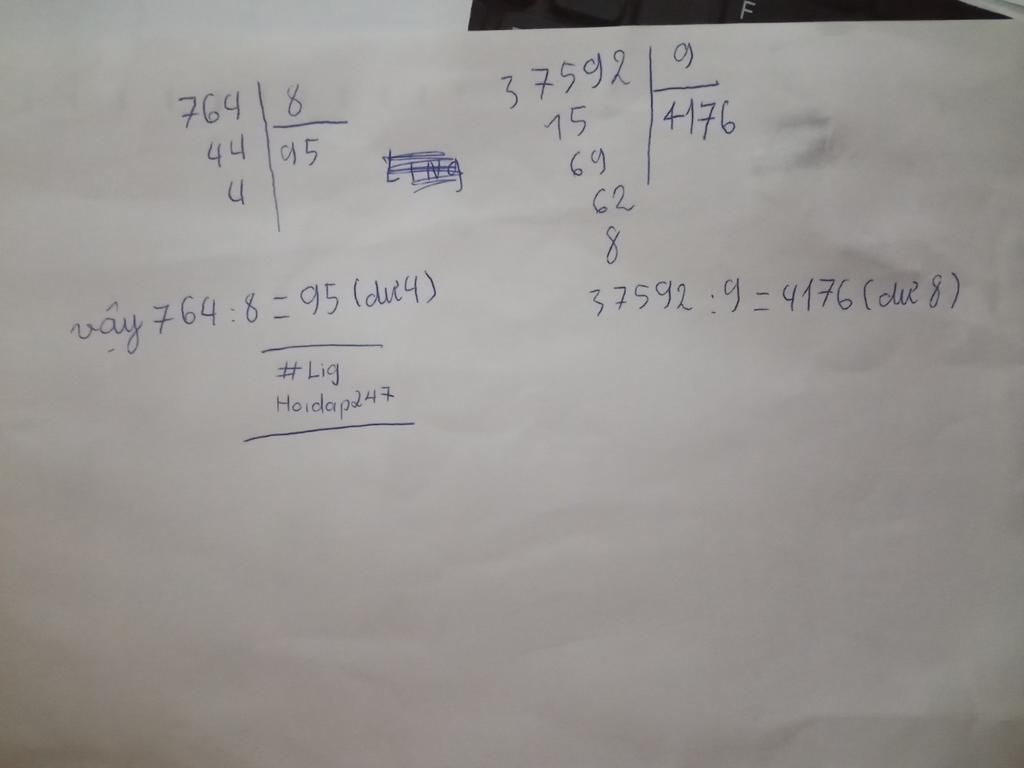 764 8
44 95
4
vậy 764 : 8 = 95 (dư 4)
#Lig
Hoidap247
37592 9
15 4176
69
62
8
37592 : 9 = 4176 (dư 8)
F